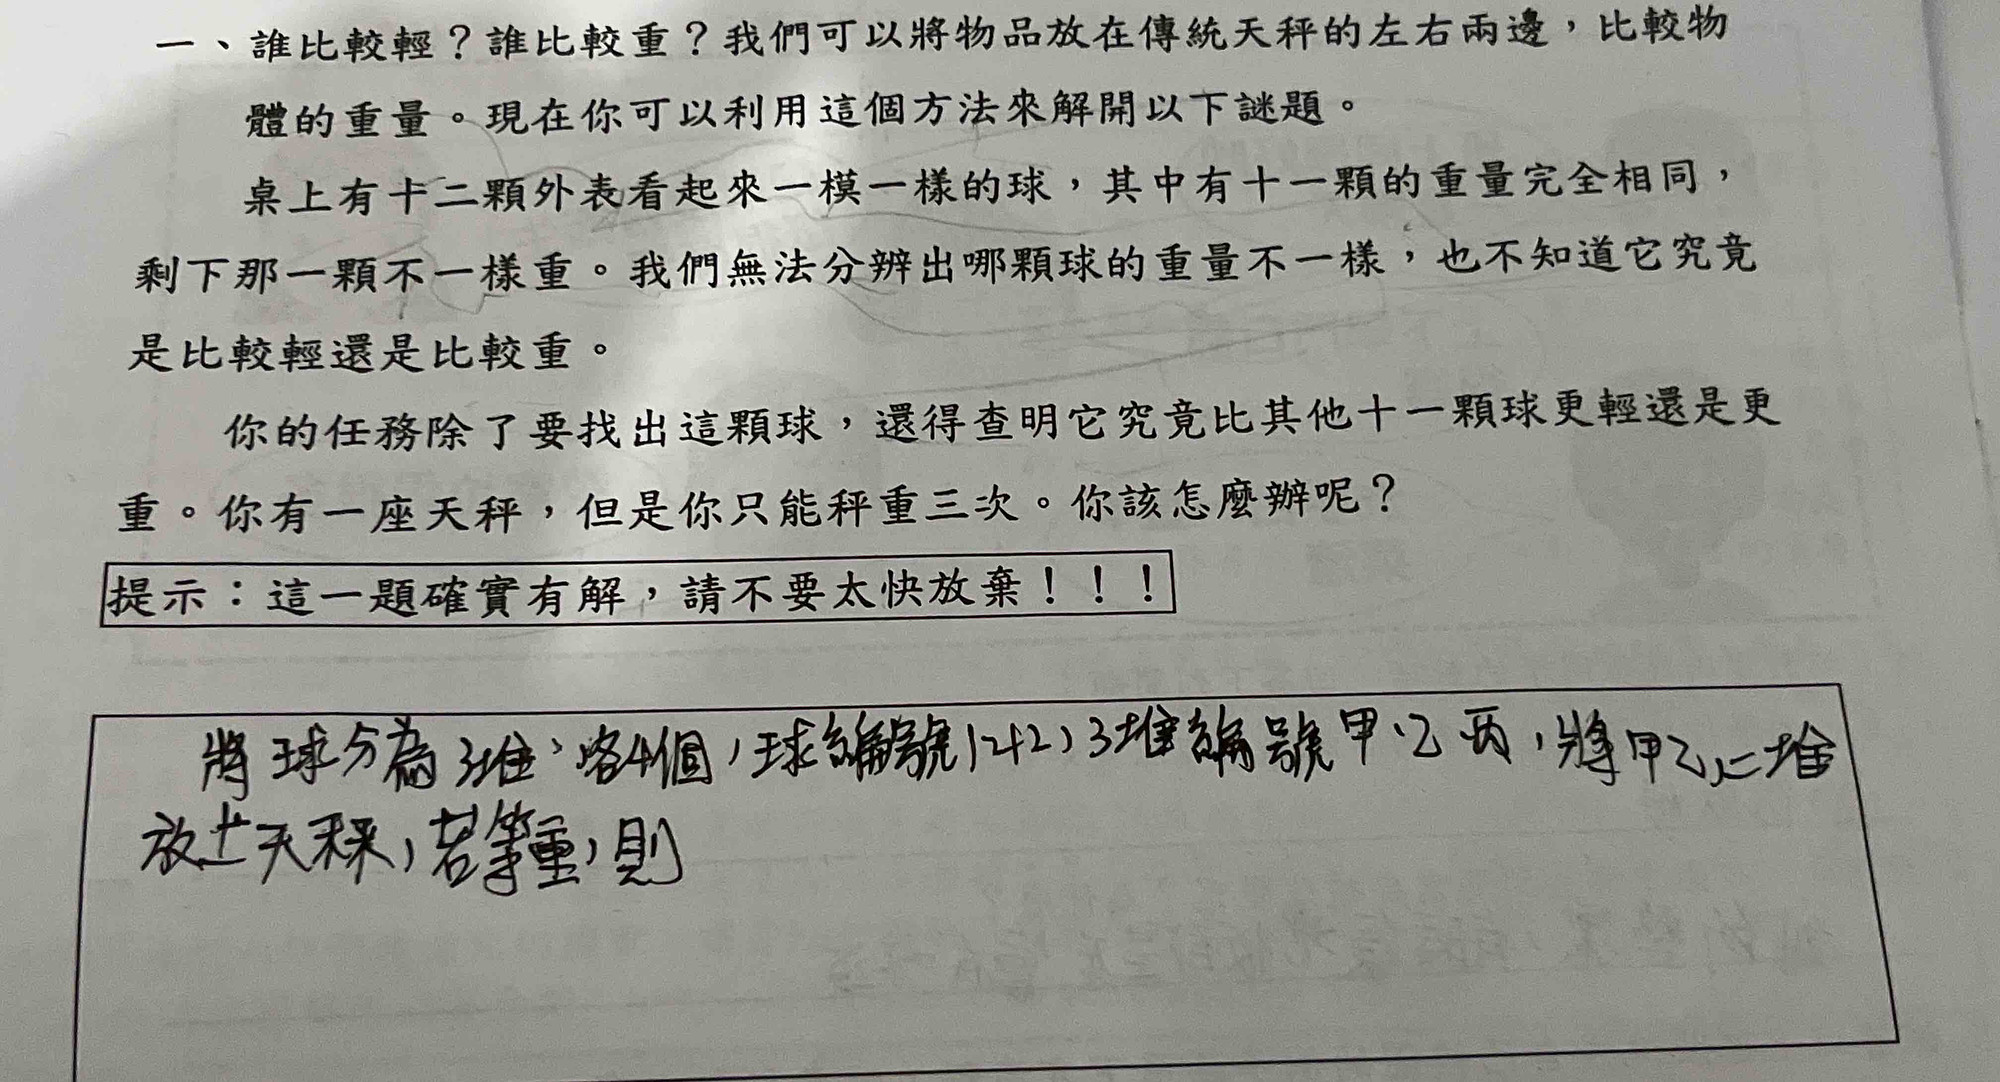 一、誰比較輕?誰比較重?我們可以將物品放在傳統天秤的左右兩邊,比較物
體的重量。現在你可以利用這個方法來解開以下謎題。
桌上有十二顆外表看起來一模一樣的球,其中有十一顆的重量完全相同,
剩下那一顆不一樣重。我們無法分辨出哪顆球的重量不一樣,也不知道它究竟
是比較輕還是比較重。
你的任務除了要找出這顆球,還得查明它究竟比其他十一顆球更輕還是更
重。你有一座天秤,但是你只能秤重三次。你該怎麼辦呢?
提示:這一題確實有解,請不要太快放棄!!!
將球分為3堆,各4個,球編號1~12,3堆編號甲乙丙,將甲乙二堆
放上天秤,若等重,則